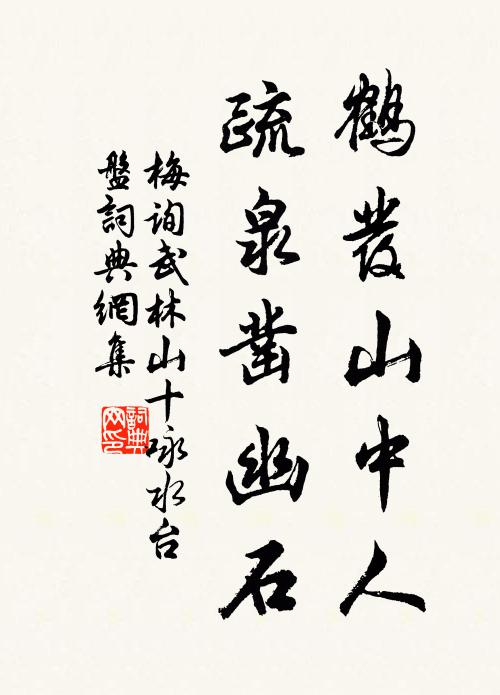 鶴發山中人
疏泉凿幽石
梅询武林山十咏水台
盤詞典網集
詞典
网印